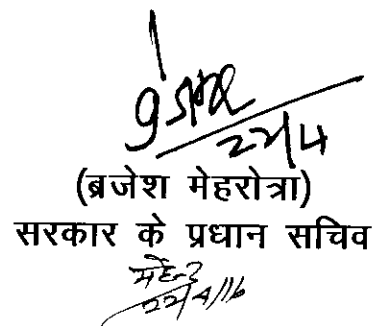 22/4
(ब्रजेश मेहरोत्रा)
सरकार के प्रधान सचिव
22/4/16